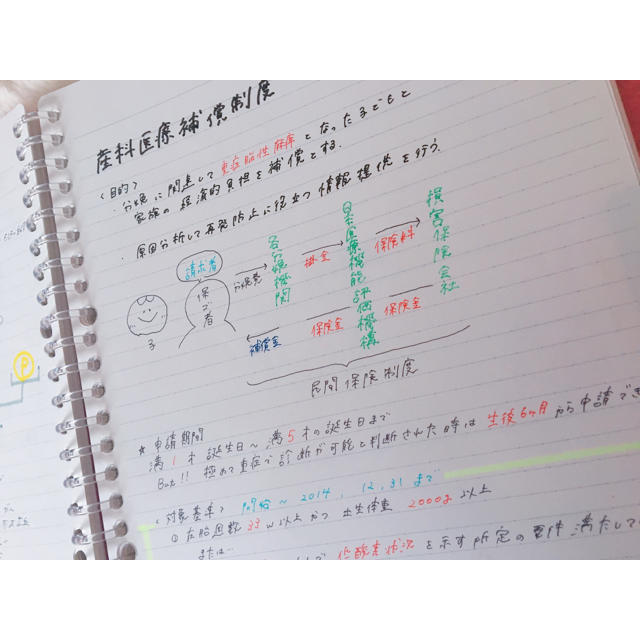 産科医療補償制度
〈目的〉
・分娩に関連して重症脳性麻痺となった子どもと
家族の経済的負担を補償とする.
・原因分析して再発防止に役立つ情報提供を行う.
請求者
保ゴ者
子
分娩費
各分娩機関
掛金
日本医療機能評価機構
保険料
損害保険会社
補償金
保険金
保険金
民間保険制度
★申請期間
満1才誕生日～満5才の誕生日まで
But!! 極めて重症で診断が可能と判断された時は生後6ヶ月から申請でき
〈対象基準〉 ～2014.12.31まで
① 在胎週数33w以上かつ出生体重2000g以上
または…
低酸素状況を示す所定の要件満たして
P